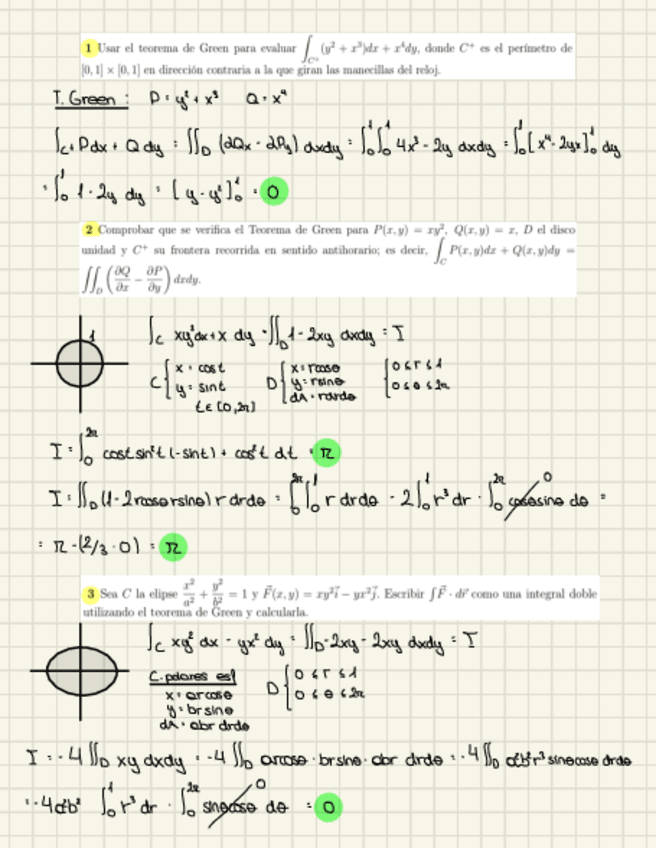 1 Usar el teorema de Green para evaluar ∫_{C⁺} (y² + x³)dx + x⁴dy, donde C⁺ es el perímetro de
[0, 1] × [0, 1] en dirección contraria a la que giran las manecillas del reloj.
T. Green : P = y² + x³ Q = x⁴
∫_{C+} Pdx + Q dy = ∬_D (∂Qx - ∂Py) dxdy = ∫₀¹∫₀¹ 4x³ - 2y dxdy = ∫₀¹[x⁴ - 2yx]₀¹ dy
= ∫₀¹ 1 - 2y dy = [y - y²]₀¹ = 0
2 Comprobar que se verifica el Teorema de Green para P(x, y) = xy², Q(x, y) = x, D el disco
unidad y C⁺ su frontera recorrida en sentido antihorario; es decir, ∫_C P(x, y)dx + Q(x, y)dy =
∬_D (∂Q/∂x - ∂P/∂y) dxdy.
1
∫_C xy²dx + x dy = ∬_D 1 - 2xy dxdy = I
C { x = cost
y = sint
t ∈ [0, 2π]
D { x = rcosθ
y = rsinθ
dA = rdrdθ
{ 0 ≤ r ≤ 1
0 ≤ θ ≤ 2π
I = ∫₀^{2π} cost sin²t (-sint) + cos²t dt = π
I = ∬_D (1 - 2rcosθ rsinθ) r drdθ = ∫₀^{2π}∫₀¹ r drdθ - 2∫₀¹ r³ dr · ∫₀^{2π} cosθsinθ dθ 0 =
= π - (2/3 · 0) = π
3 Sea C la elipse x²/a² + y²/b² = 1 y F⃗(x, y) = xy²i⃗ - yx²j⃗. Escribir ∫F⃗ · dr⃗ como una integral doble
utilizando el teorema de Green y calcularla.
∫_C xy² dx - yx² dy = ∬_D -2xy - 2xy dxdy = I
C. polares esf
x = arcosθ
y = brsinθ
dA = abr drdθ
D { 0 ≤ r ≤ 1
0 ≤ θ ≤ 2π
I = -4 ∬_D xy dxdy = -4 ∬_D arcosθ · brsinθ · abr drdθ = -4 ∬_D a²b²r³ sinθcosθ drdθ
= -4a²b² ∫₀¹ r³ dr · ∫₀^{2π} sinθcosθ dθ 0 = 0